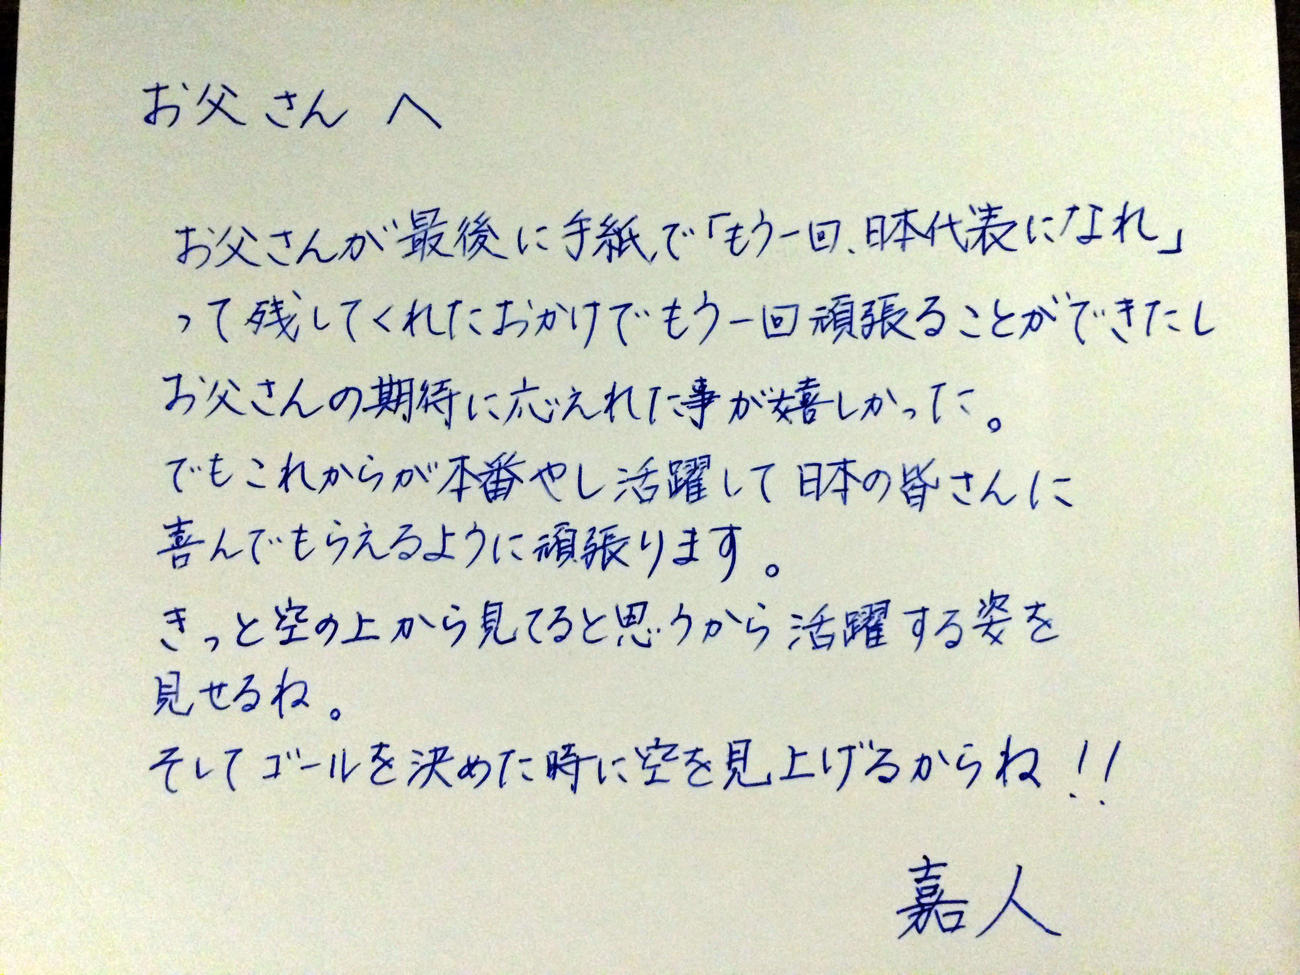 お父さんへ
お父さんが最後に手紙で「もう一回、日本代表になれ」
って残してくれたおかげでもう一回頑張ることができたし
お父さんの期待に応えれた事が嬉しかった。
でもこれからが本番やし活躍して日本の皆さんに
喜んでもらえるように頑張ります。
きっと空の上から見てると思うから活躍する姿を
見せるね。
そしてゴールを決めた時に空を見上げるからね!!
嘉人